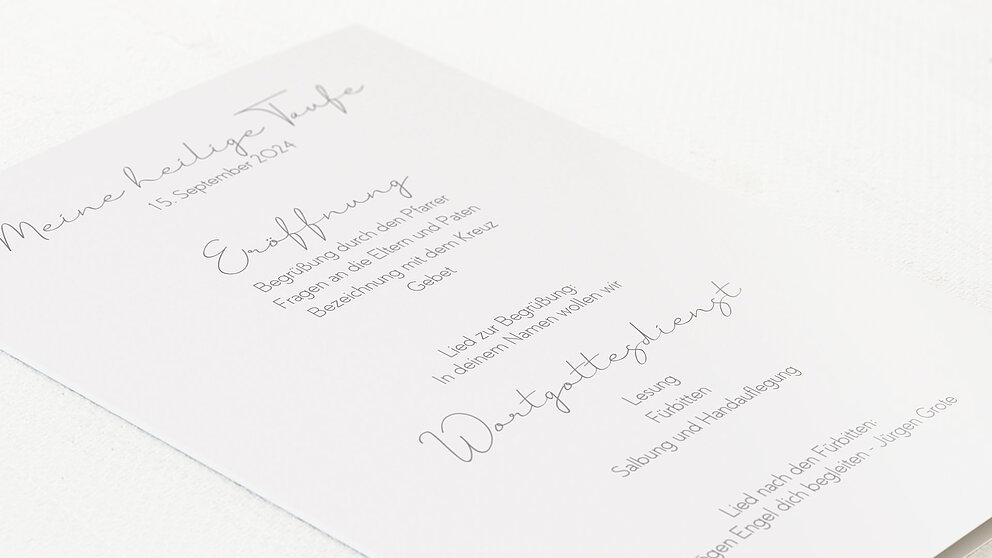 Meine heilige Taufe
15. September 2024
Eröffnung
Begrüßung durch den Pfarrer
Fragen an die Eltern und Paten
Bezeichnung mit dem Kreuz
Gebet
Lied zur Begrüßung:
In deinem Namen wollen wir
Wortgottesdienst
Lesung
Fürbitten
Salbung und Handauflegung
Lied nach den Fürbitten:
Engel dich begleiten - Jürgen Grote